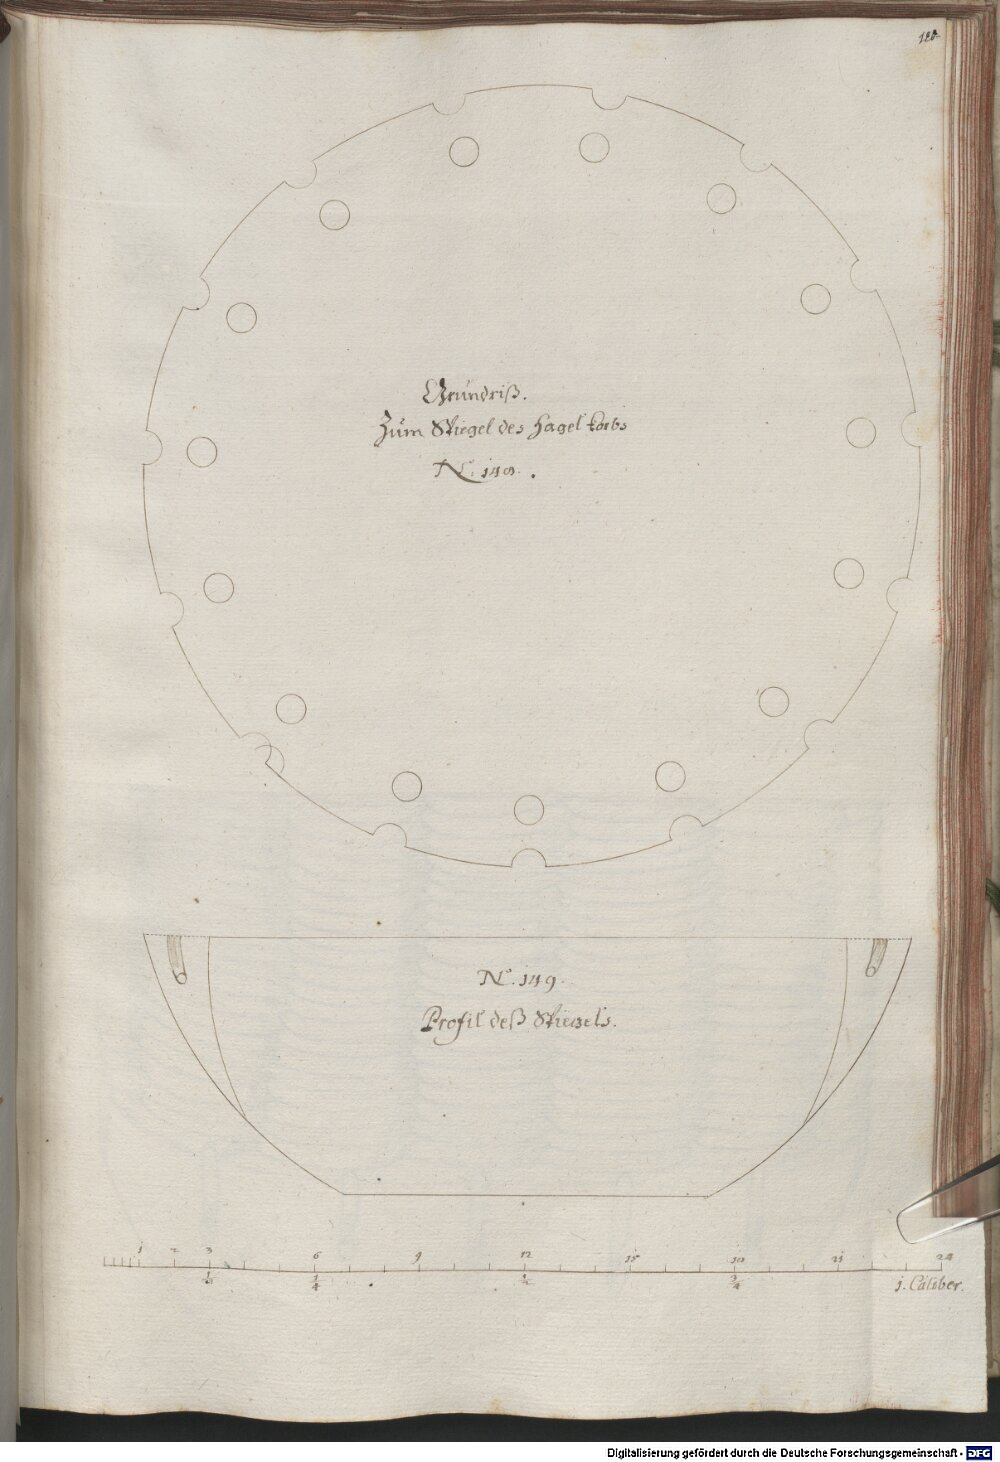 120
Grundriß.
Zum Spiegel des Hagel korbs
N. 148.
N. 149.
Profil deß Spiegels.
1 2 3 6 9 12 15 18 21 24
1/8 1/4 1/2 3/4
1. Caliber.
Digitalisierung gefördert durch die Deutsche Forschungsgemeinschaft - DFG